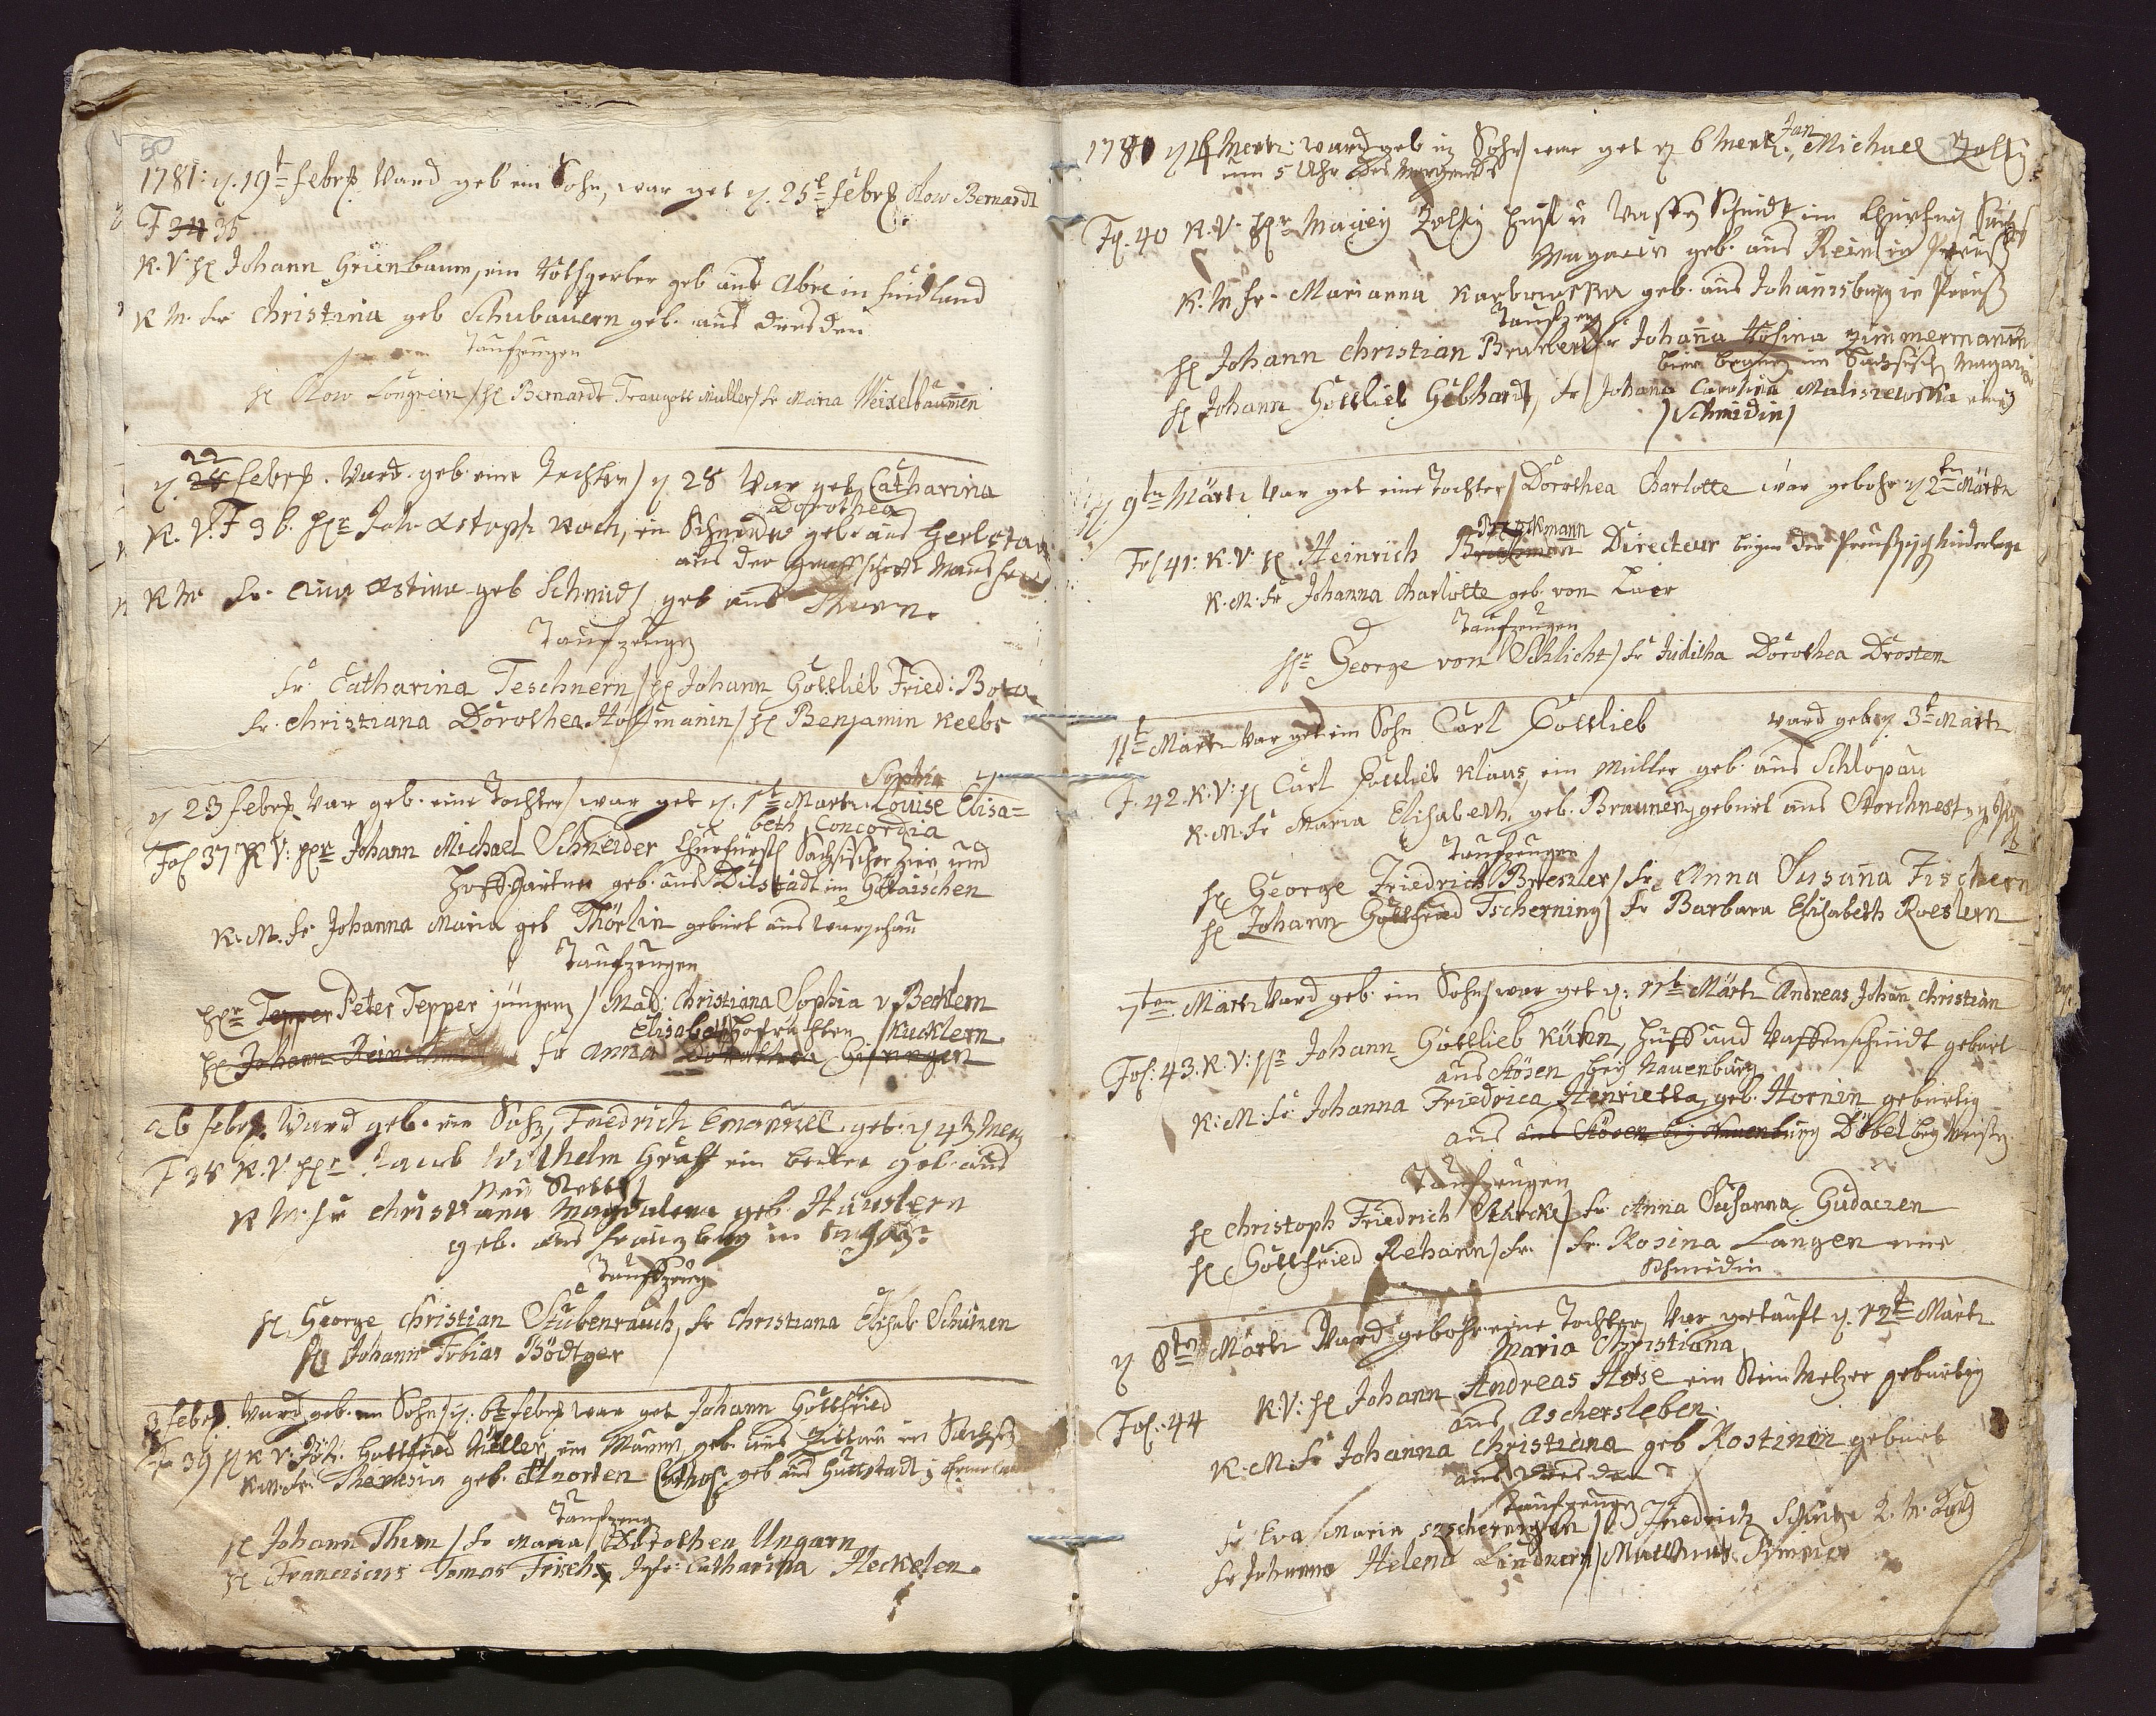 50
1781: d. 19t Febr. Ward geb ein Sohn, war get d. 25t Febr. Olow Bernardt
F 34 35
K. V. H Johann Grünbaum, ein Rothgerber geb aus Abre in Finland
K M. Fr Christina geb Schubauern geb. aus Dresden
Taufzeugen
H Olow Lougrein / H Bernardt Traugott Muller / Fr Maria Weixelbaumen
22
d. 28 Febr. Ward. geb. eine Tochter / d 28 War get Catharina
Dorothea
K. V. F 36. Hr Joh. Xstoph Koch, ein Schneider geb. aus Gerbstad
aus der Graffschafft Mansfeld
K M. Fr. Anna Xstina geb Schmidt geb aus
Taufzeugen
Fr. Catharina Teschnern / H Johann Gottlieb Fried:
Fr. Christiana Dorothea Hoffmanin / H Benjamin Keebs
Sophia
d 23 Febr. War geb. eine Tochter / war get d. 1t Martz. Louise Elisa=
beth Concordia
Fol 37 K V: Hr Johann Michael Schneider Churfürstl Sächsischer Zier und
Hoffgärtner geb. aus Dilstädt im Gottaischen
K. M. Fr Johanna Maria geb Thörlin gebürt aus Warschau
Taufzeugen
Hr Tepper Peter Tepper jüngern / Mad: Christiana Sophia v Bechlern
Elisabeth Kucklern
H Johann Fr Anna Dorothea
26 Febr. Ward geb. ein Sohn, Friedrich Emanuel get. d 4 Mertz
F 38 K. V. Hr. Jacob Wilhelm Grafft ein becker geb. aus
Neu Stettin
K M. Fr Christiana Magdalena geb. Häuslern
geb. aus in
Taufzeug
H George Christian Stubenrauch, Fr Christiana Elisab Schützen
H Johann Tobias Bödtger
3 Febr. Ward geb. ein Sohn / d. 6t Febr war get Johann Gottfried
F 39 H K V: Joh. Gottfried Müller, ein Maurer, geb. aus Zittau in Sachsen
K. M. Fr Theresia geb. Knorten Cathol geb aus Guttstadt
Taufzeug
H Johann Thim / Fr Maria Dorothea Ungarn
H Franciscus Tomas Frisch, Jgfr: Catharina Heckelen
1781 d 4 Mertz: ward geb ein Sohn / war get d 6 Mertz. Jan Michael Zolky
um 5 Uhr des Morgends
Fol. 40 K. V. Hr Maciey Zolky Huf u Waffen Schmidt im Churfürs Säch
Magacin geb. aus Rein in Preuß
K. M Fr. Marianna Karbowska geb. aus Johannsburg in Preuß
Taufzeug
H Johann Christian Fr Johanna Rosina Zimmermannin
im Sächsisch Magazin
H Johann Gottlieb Gebhardt, Fr / Johana Carolina Maliszewska eine
/ Schmidin /
d 9tn Märtz War get eine Tochter / Dorothea Charlotte war gebohr d 2tn Märtz
Fol 41: K. V: H Heinrich Brückmann Directeur beym der Preußisch Niderlage
K. M. Fr Johanna Charlotte geb. von Laer
Taufzeugen
Hr George von Schlicht / Fr Juditha Dorothea Drosten
11t Märtz War get ein Sohn Carl Gottlieb ward geb d. 3t Märtz
F. 42. K. V: H Carl Gottlieb Klaus, ein Müller geb. aus Schlopau
K. M. Fr Maria Elisabeth, geb. Braunern, gebürt aus Storchnest
Taufzeugen
H George Friedrich Bresler / Fr. Anna Susanna Fischern
H Johann Gottfried Tscherning / Fr Barbara Elisabeth Roeslern
7ten Märtz Ward geb. ein Sohn / war get d. 11t Märtz Andreas Johan Christian
Fol: 43. K. V: Hr Johann Gottlieb Kühn, Huff und Waffenschmidt gebürt
aus Stösen bey Nauenburg
K: M: Fr Johanna Friedrica Henrietta, geb. Hornin gebürtig
aus aus Stösen bey Nauenburg Döbel bey Meisen
Taufzeugen
H Christoph Friedrich Starcke / Fr Anna Susanna Gudaczen
H Gottfried Rehann / Fr. / Fr. Rosina Langen eine
Schmidin
d 8ten Märtz Ward gebohr eine Tochter War getauft d. 12t Märtz
Maria Christiana
Fol: 44 K. V: H Johann Andreas Hose ein Stein Metzer gebürtig
aus Aschersleben.
K: M: Fr Johanna Christiana geb Kostinin gebürt
aus Dresden
Taufzeugen
Fr Eva Maria / Friedrich
Fr Johanna Helena Lindnern /